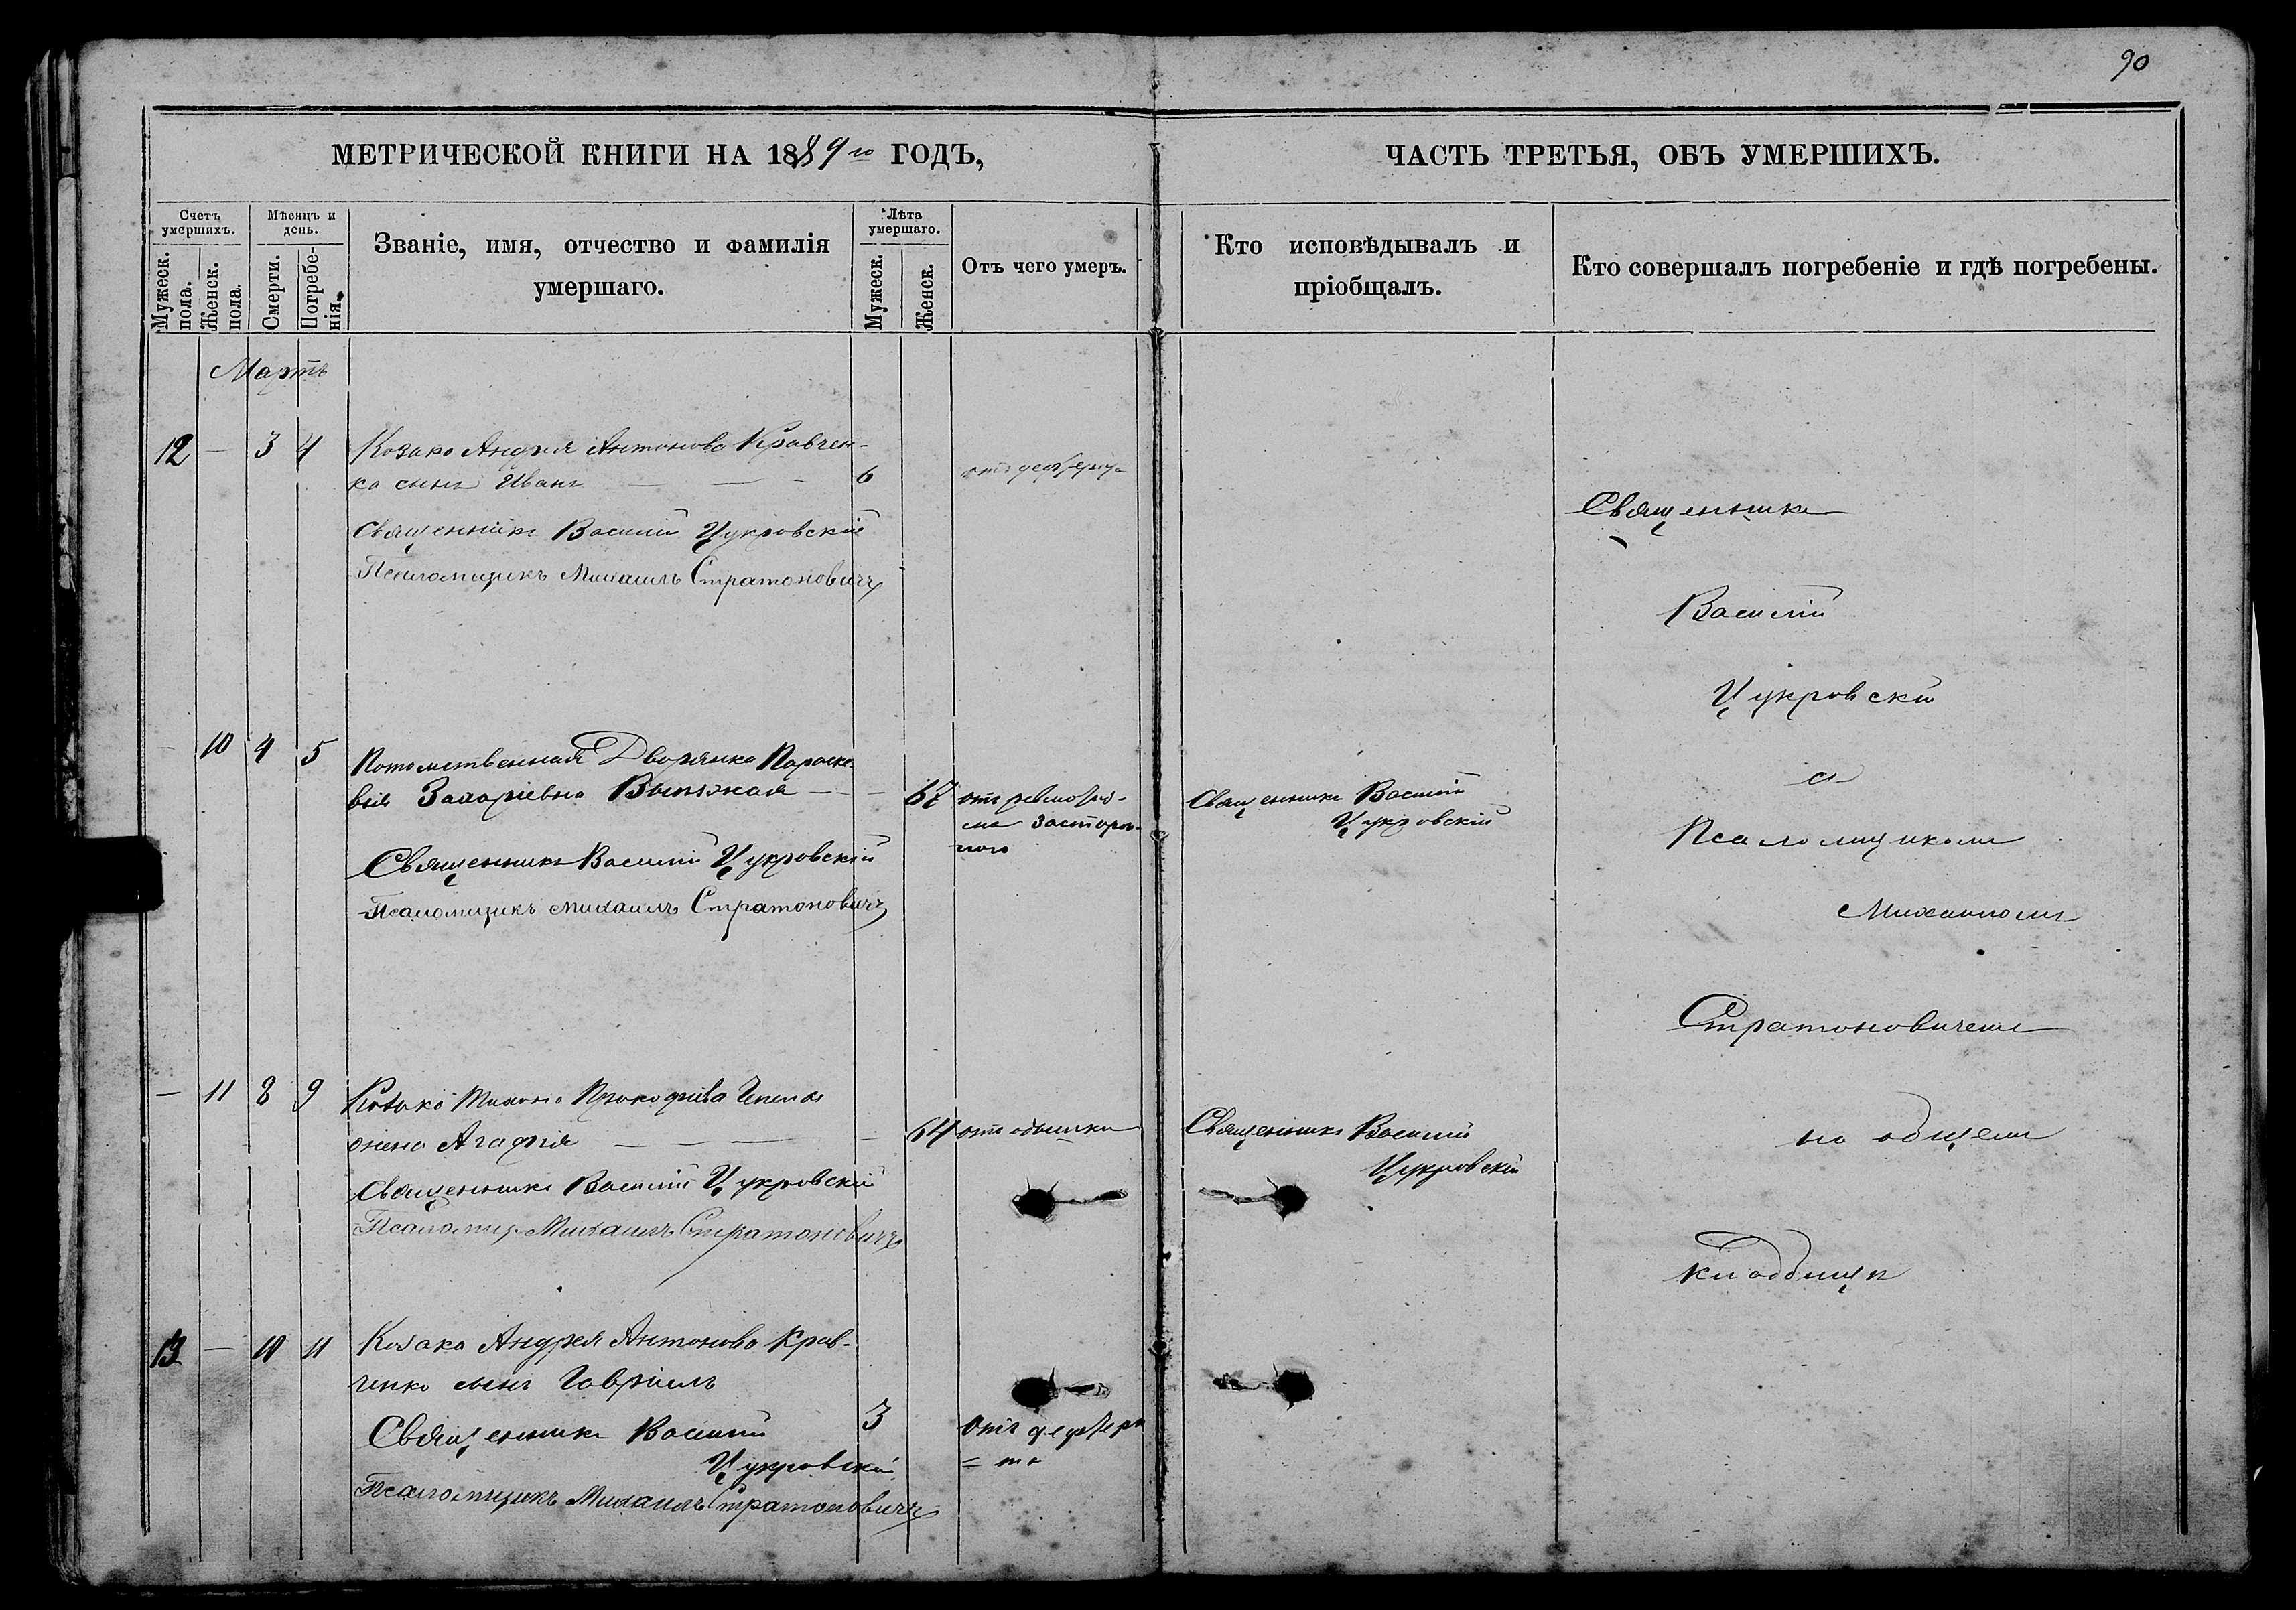 90
МЕТРИЧЕСКОЙ КНИГИ НА 1889го ГОДЪ,
ЧАСТЬ ТРЕТЬЯ, ОБЪ УМЕРШИХЪ.
Счетъ умершихъ.
Мужеск. пола.
Женск. пола.
Мѣсяцъ и день.
Смерти.
Погребенія.
Званіе, имя, отчество и фамилія
умершаго.
Лѣта умершаго.
Мужеск.
Женск.
Отъ чего умеръ.
Кто исповѣдывалъ и
пріобщалъ.
Кто совершалъ погребеніе и гдѣ погребены.
Мартъ
12 — 3 4 Козака Андрея Антонова Кравчен-
ка сынъ Иванъ — — - 6
Священникъ Василій Цукровскій
Псаломщикъ Михаилъ Стратоновичъ
— 10 4 5 Потомственная Дворянка Параске-
вія Захаріевна — — 67 отъ
Священникъ Василій Цукровскій
Псаломщикъ Михаилъ Стратоновичъ
Священникъ Василій
Цукровскій
— 11 8 9 Козака Прокофіева
жена Агафія — — — — 64 отъ одышки
Священникъ Василій Цукровскій
Псаломщ. Михаилъ Стратоновичъ
Священникъ Василій
Цукровскій
13 — 10 11 Козака Андрея Антонова Крав-
ченко сынъ Гавріилъ
3 отъ
Священникъ Василій
Цукровскій
Псаломщикъ Михаилъ Стратоновичъ
Священникъ
Василій
Цукровскій
съ
Псаломщикомъ
Михаиломъ
Стратоновичемъ
на общемъ
кладбищѣ